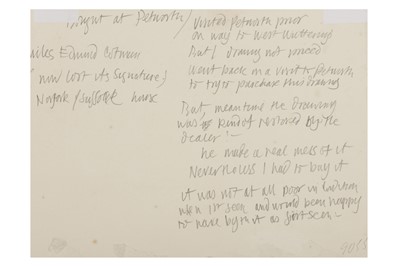 bought at Petworth)
Miles Edmund Cotman
(now lost its signature)
Norfolk / Suffolk house
Visited Petworth prior
on way to West Wittering
But drawing not priced
Went back on a visit to Petworth
to try to purchase this drawing
But, meantime the drawing
was kind of restored by the
dealer! —
he made a real mess of it
Nevertheless I had to buy it
it was not at all poor in condition
when 1st seen and would been happy
to have by it as first seen —